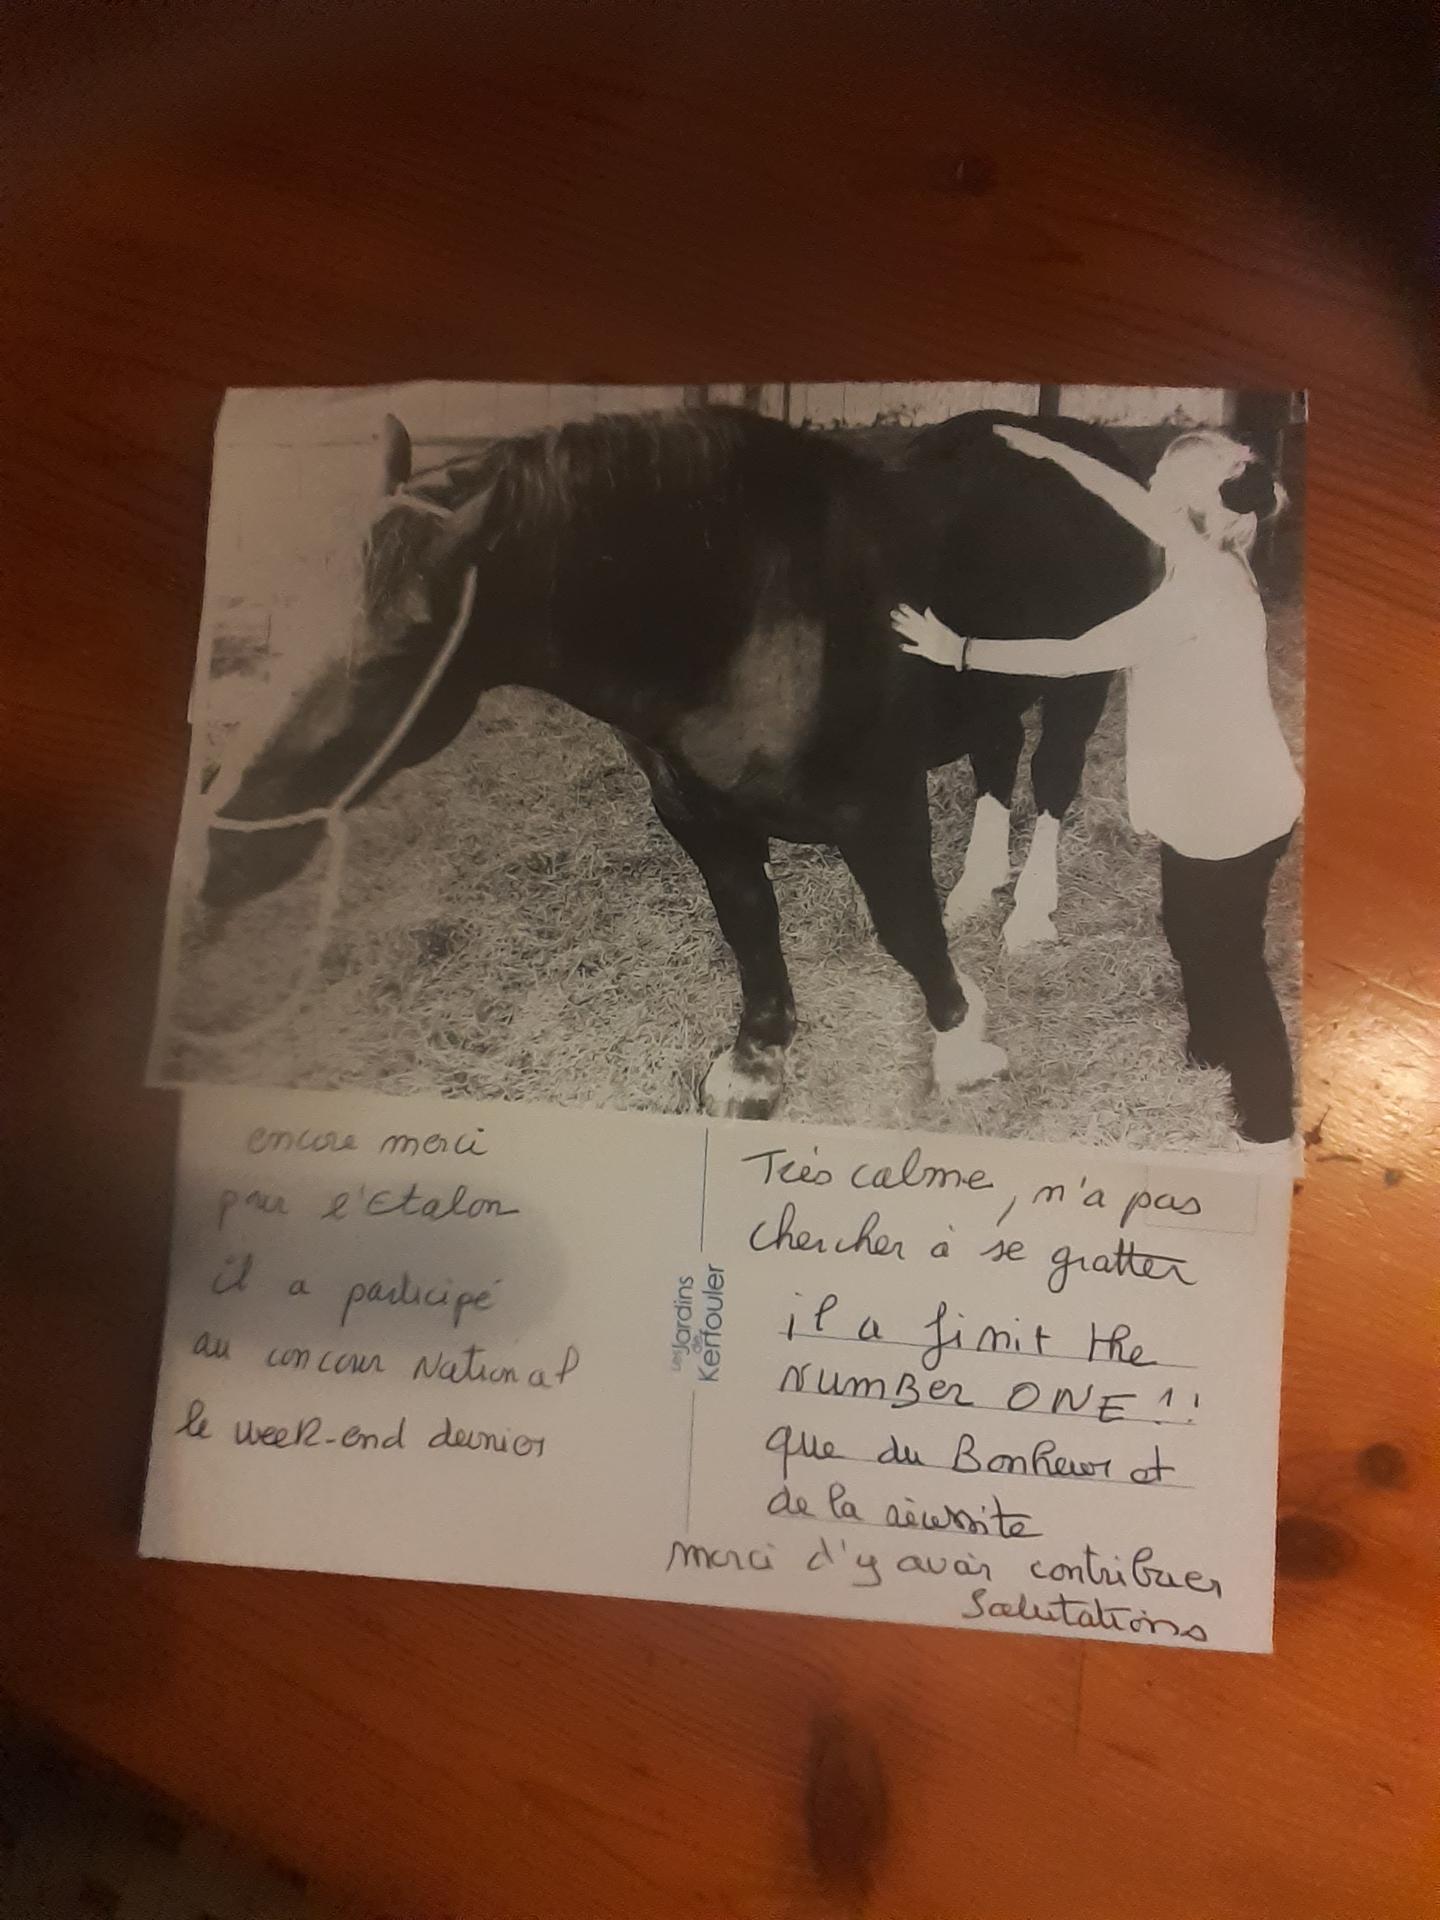 encore merci
pour l'Etalon
il a participé
au concour National
le week-end dernier
Les Jardins
de
Kerfouler
Très calme, n'a pas
chercher à se gratter
il a finit the
NUMBER ONE !!
que du Bonheur et
de la réussite
merci d'y avoir contribuer
Salutations